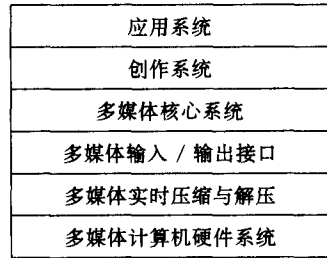 应用系统
创作系统
多媒体核心系统
多媒体输入 / 输出接口
多媒体实时压缩与解压
多媒体计算机硬件系统